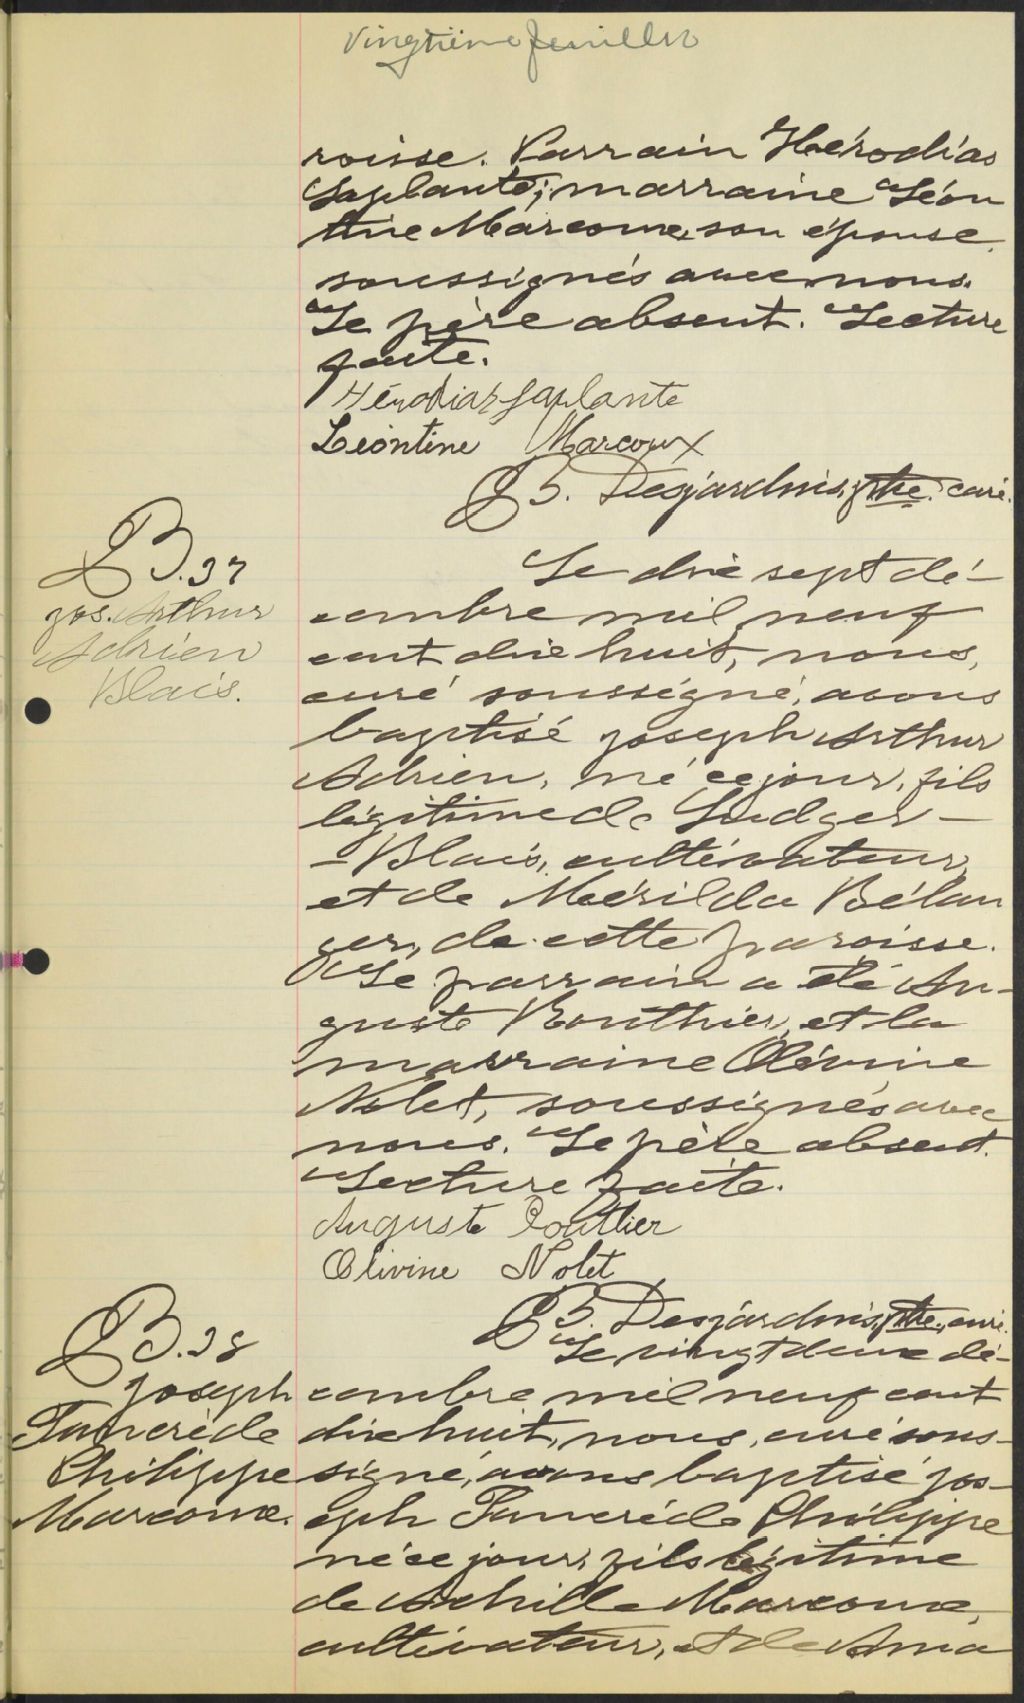 vingtième feuillet
roisse. Parrain Hérodias
Laplante; marraine Léon
tine Marcoux, son épouse
soussignés avec nous.
Le père absent. Lecture
faite.
Hérodias Laplante
Léontine Marcoux
J B. Desjardins, ptre. curé.
B. 37
Jos. Arthur
Adrien
Blais.
Le dix sept dé-
cembre mil neuf
cent dix huit, nous,
curé soussigné, avons
baptisé Joseph Arthur
Adrien, né ce jour, fils
légitime de Ludger -
- Blais, cultivateur,
et de Mérilda Bélan
ger, de cette paroisse.
Le parrain a été Au-
guste Routhier, et la
marraine Olévine
Nolet, soussignés avec
nous. Le père absent.
Lecture faite.
Auguste Routhier
Olivine Nolet
J B. Desjardins, ptre., curé.
B. 38
Joseph
Tancrède
Philippe
Marcoux.
Le vingt deux dé-
cembre mil neuf cent
dix huit, nous, curé sous-
signé, avons baptisé Jos-
eph Tancrède Philippe
né ce jour, fils légitime
de Achille Marcoux,
cultivateur, et de Anna